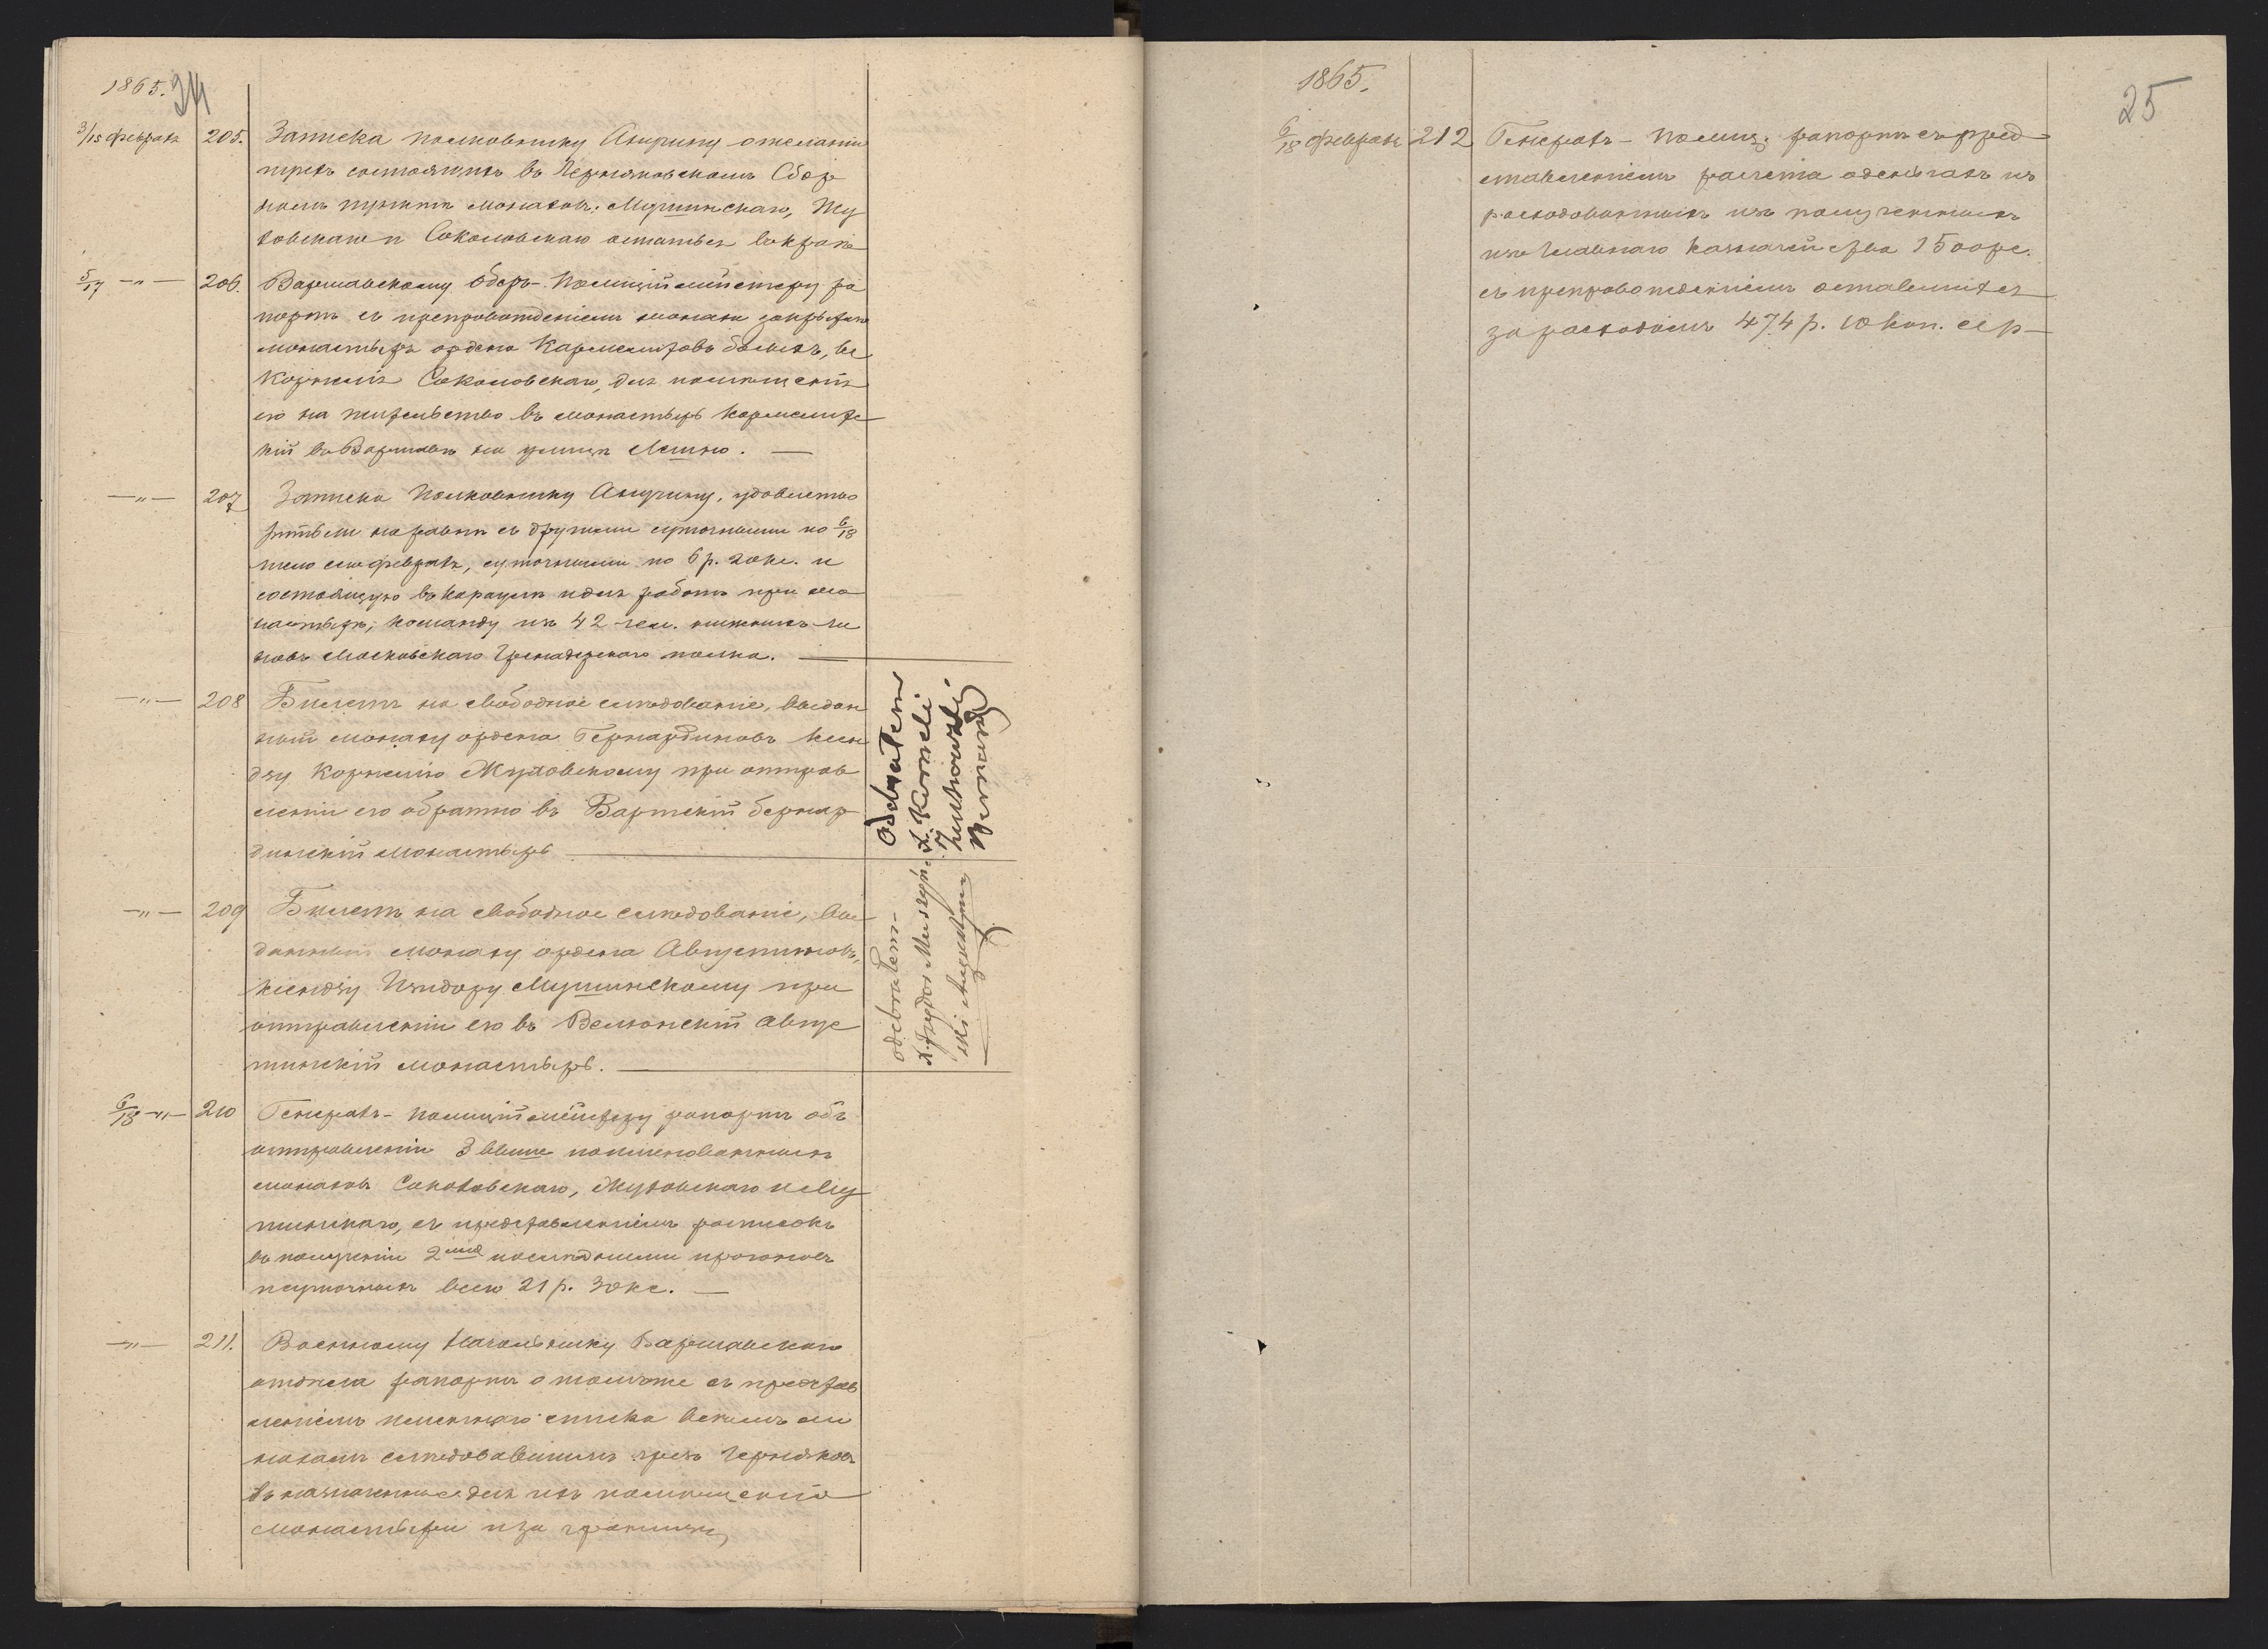 1865.
24
3/15 февраля 205. Записка полковнику Анурину о желанiи
трехъ состоящихъ въ Черняковскомъ Сбор
номъ пунктѣ монаховъ: Мушинскаго, Жу
ховскаго и Соколовскаго остаться въ краѣ
5/17 —„— 206. Варшавскому Оберъ-Полицiймейстеру ра
портъ съ препровожденiемъ монаха закрытаго
монастыря ордена Кармелитовъ босыхъ, кс.
Корнелiя Соколовскаго, для помѣщенiя
его на жительство въ монастырь Кармелитс
кiй въ Варшавѣ на улицѣ Лешно. —
—„— 207 Записка Полковнику Анурину, удовлетво
рить им наравнѣ съ другими суточными по 6/18
число сего февраля, суточными по 6 р. 20 к. и
состоящую въ караулѣ и для работъ при мо
настырѣ, команду изъ 42 чел. нижнихъ чи
новъ Московскаго Гренадерскаго полка. —
—„— 208 Билетъ на свободное слѣдованiе, выдан
ный монаху ордена Бернардиновъ ксен
дзу Корнелiю Жуховскому при отправ
ленiи его обратно въ Вартскiй бернар
динскiй монастырь —
Odebrałem
X. Korneli
Żuchowski
Bernardyn
—„— 209 Билетъ на свободное слѣдованiе, вы
данный монаху ордена Августиновъ,
ксендзу Изидору Мушинскому при
отправленiи его въ Велюнскiй Авгус
тинскiй монастырь. —
odebrałem
X. Izydor Muszyń
ski Augustyn
6/18 —„— 210 Генералъ-полицiймейстеру рапортъ объ
отправленiи 3 выше поименованныхъ
монаховъ Соколовскаго, Жуховскаго и Му
шинскаго, съ представленiемъ росписокъ
въ полученiи 2мя послѣдними прогоновъ
и суточныхъ всего 21 р. 30 к. —
—„— 211. Военному Начальнику Варшавскаго
отдѣла рапортъ о томъ же съ представ
ленiемъ именнаго списка всѣмъ мо
нахамъ слѣдовавшимъ чрезъ Черняковъ
въ назначенные для ихъ помѣщенiя
монастыри и за границу,
1865.
25
6/18 февраля 212 Генералъ-Полиц. рапортъ съ пред
ставленiемъ расчета о деньгахъ из
расходованныхъ изъ полученныхъ
изъ Главнаго Казначейства 1500 р с.
съ препровожденiемъ оставшихся
за расходомъ 474 р. 10 коп. сер —